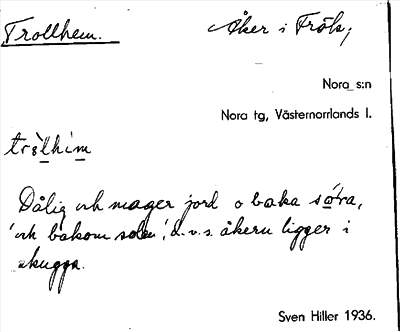 Trollhem. Åker i Frök;
Nora s:n
Nora tg, Västernorrlands l.
tròlhim
Dålig och mager jord o baka sóra,
'och bakom solen', d.v.s. åkern ligger i
skugga.
Sven Hiller 1936.